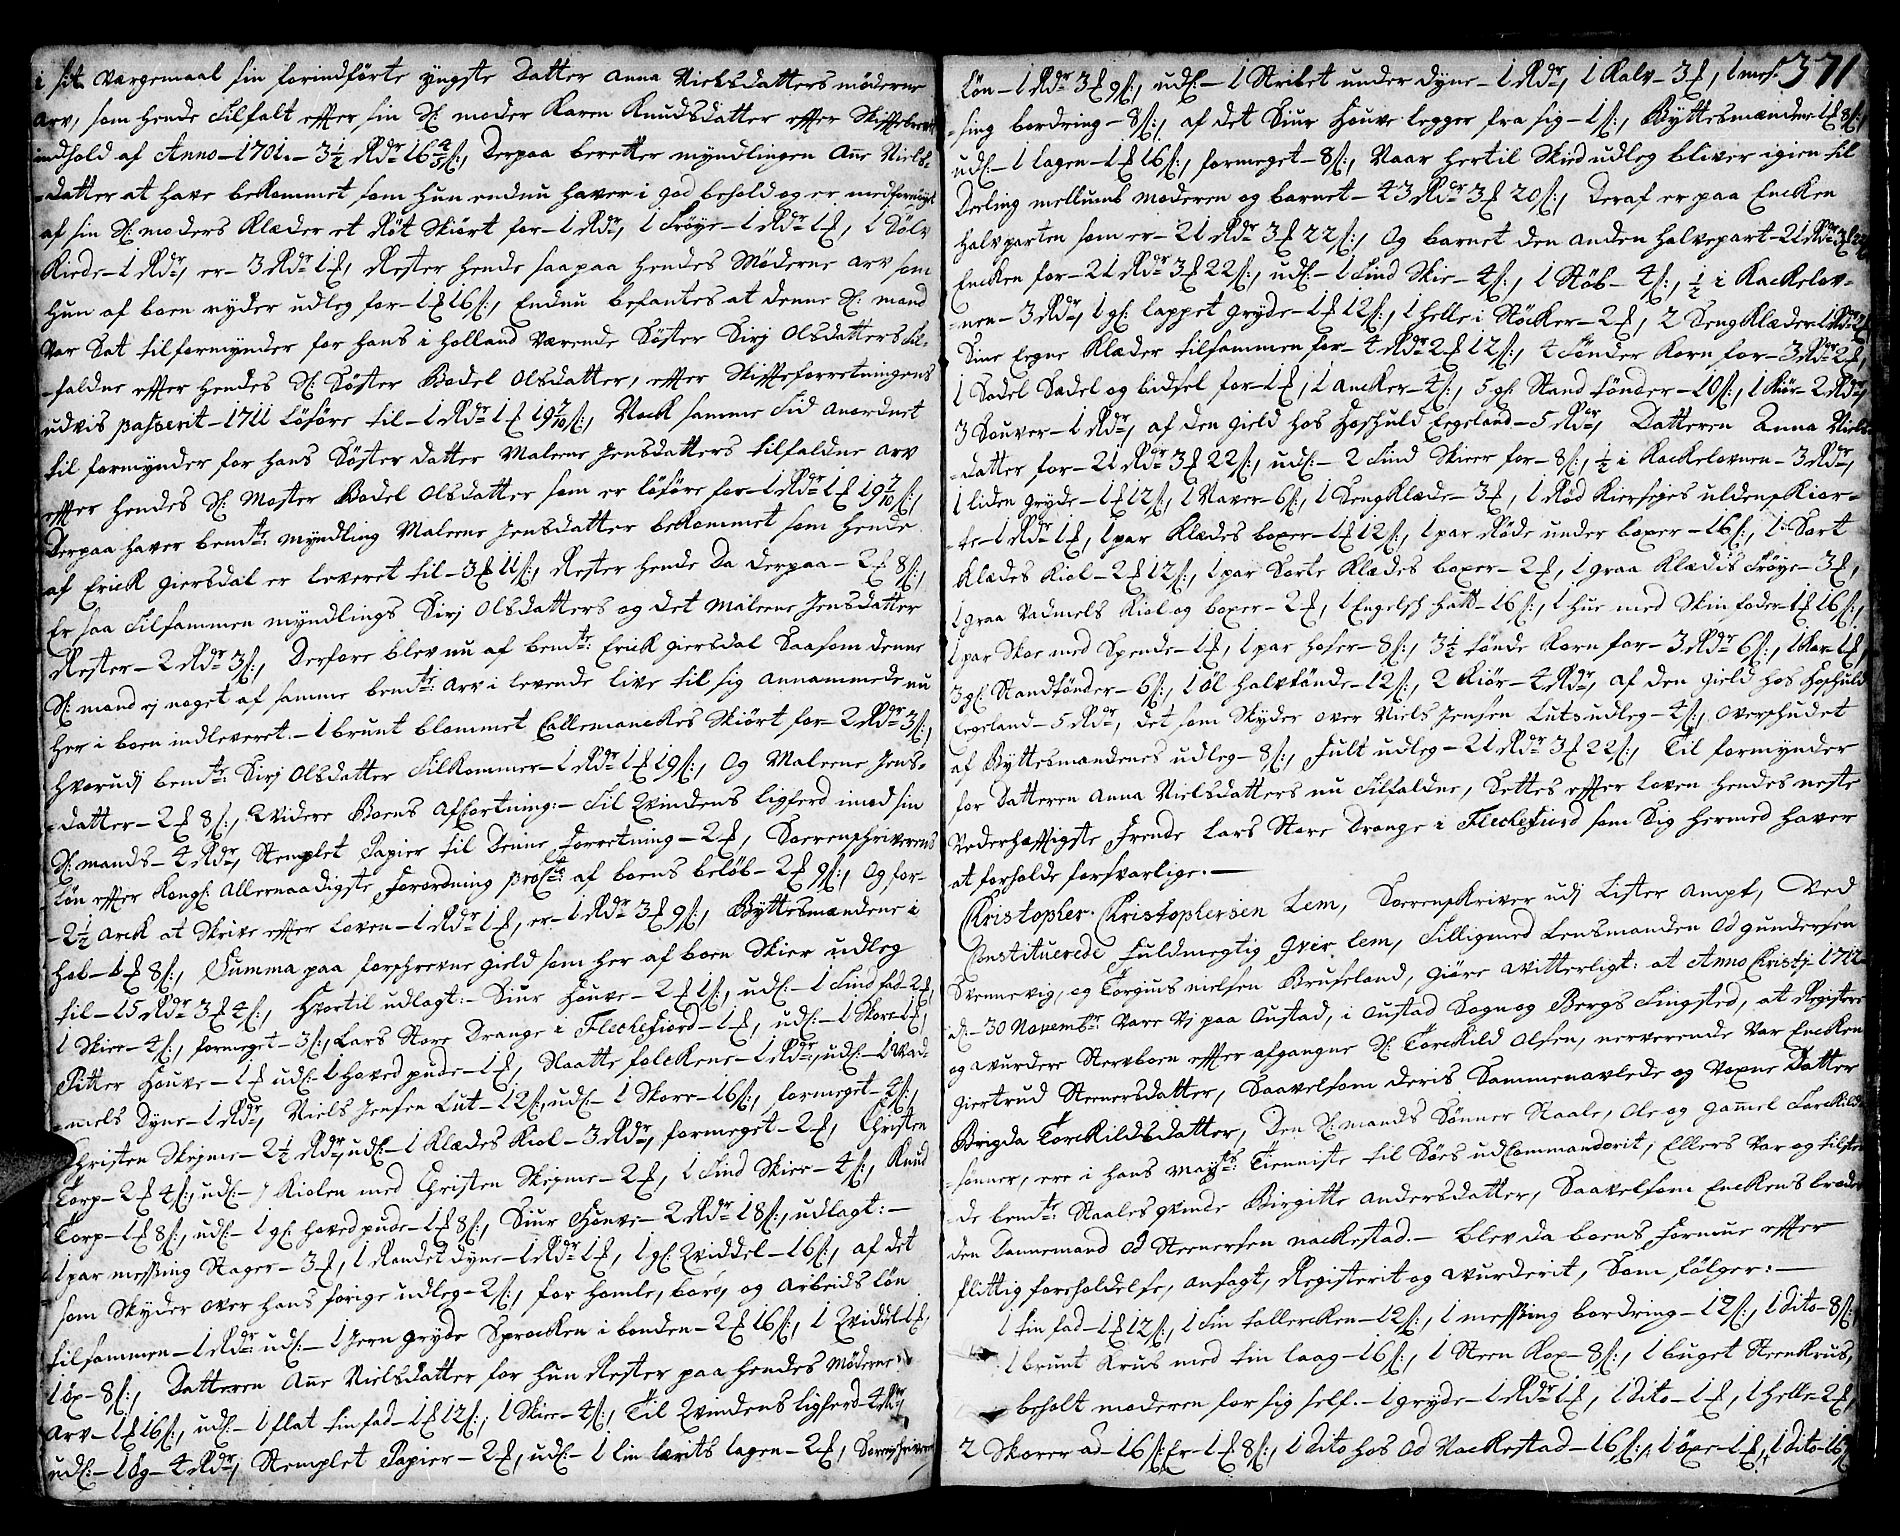 i sit Værgemaal sin forindførte yngste Datter Anna Nielsdatters møderne
Arv, som hende tilfalt effter sin Sl: moder Karen Knudsdatter effter Skiffte brevets
indhold af Anno - 1701. - 3½ Rdr 16 ß:, Derpaa beretter myndlingen Ane Niels-
-datter at have bekommet som hun endnu haver i god behold og er med fornøyet
af sin Sl: moders Klæder et Røt Skiørt for - 1 Rdr, 1 Trøye - 1 Rdr 1 ℔, 1 Sølv
Kiede - 1 Rdr, er - 3 Rdr 1 ℔, Rester hende saa paa hendes Møderne arv som
hun af boen nyder udleg for - 1 ℔ 16 ß:, Endnu befantes at denne Sl: mand
Var Sat til formynder for hans i Holland Værende Søster Sirj Olsdatters til-
-faldne effter hendes Sl: Søster Bodel Olsdatter, effter Skiffteforretningens
udvis passerit - 1711 løsøre til - 1 Rdr 1 ℔ 19 7/10 ß:, Nock samme tid anordnet
til formynder for hans Søster datter Maleene Jensdatters tilfaldne arv
effter hendes Sl: Moster Bodel Olsdatter som er løsøre for - 1 Rdr 1 ℔ 19 7/10 ß:,
Derpaa haver bemte: myndling Maleene Jensdatter bekommet som hende
af Erick Giersdal er leveret til - 3 ℔ 11 ß:, Rester hende Da derpaa - 2 ℔ 8 ß:,
Er saa tilsammen myndlings Sirj Olsdatters og det Maleene Jensdatter
Rester - 2 Rdr 3 ß:, Derfore blev nu af bemte: Erick Giersdal Saasom denne
Sl: mand ej noget af samme bemte: arv i levende live til sig annammede nu
her i boen indleveret. - 1 brunt blommet Callemanckes Skiørt for - 2 Rdr 3 ß:,
hvorudj bemte: Sirj Olsdatter tilkommer - 1 Rdr 1 ℔ 19 ß:, Og Maleene Jens-
-datter - 2 ℔ 8 ß:, Widere Boens Afkortning: - til Qvindens ligferd imod sin
Sl: mands - 4 Rdr, Stemplet Papier til Denne Forretning - 2 ℔, Sorenschriverens
Løn effter Kongl: Allernaadigste Forordning pro Cto af boens beløb - 2 ℔ 9 ß:, Og for-
- 2½ Arck at Skrive effter Loven - 1 Rdr 1 ℔, er - 1 Rdr 3 ℔ 9 ß:, Byttesmændene i
hob - 1 ℔ 8 ß:, Summa paa forschrevne gield som her af boen Skier udleg
til - 15 Rdr 3 ℔ 4 ß:, Hvortil udlagt: - Siur Houve - 2 ℔ 1 ß:, udl: - 1 Tind fad - 2 ℔,
1 Skier - 4 ß:, formeget - 3 ß:, Lars Store Drange i Fleckefiord - 1 ℔, udl: - 1 Skore - 1 ℔,
Pitter Houve - 1 ℔ udl: - 1 Hoved pude - 1 ℔, Slaatte folckene - 1 Rdr, udl: - 1 Vad-
-mels Dyne - 1 Rdr, Niels Jensen Lut - 12 ß:, udl: - 1 Skore - 16 ß:, formeget - 4 ß:,
Christen Skejme - 2½ Rdr, udl: - 1 Klædes Kiol - 3 Rdr, formeget - 2 ℔, Christen
Torp - 2 ℔ 4 ß:, udl: - i Kiolen med Christen Skejme - 2 ℔, 1 Tind Skier - 4 ß:, Knud
Torp - 1 ℔ 8 ß:, udl: - 1 gl: hoved pude - 1 ℔ 8 ß:, Siur Houve - 2 Rdr 18 ß:, udlagt: -
1 par messing Stager - 3 ℔, 1 Randet dyne - 1 Rdr 1 ℔, 1 gl: Qviddel - 16 ß:, af det
som Skyder over hans forige udleg - 2 ß:, for homle, bord, og Arbeids løn
tilsammen - 1 Rdr udl: - 1 Jern gryde Sprocken i bonden - 2 ℔ 16 ß:, 1 Qviddel - 1 ℔,
1 øx - 8 ß:, Datteren Ane Nielsdatter for hun Rester paa hendes Møderne
Arv - 1 ℔ 16 ß:, udl: - 1 flat tin fad - 1 ℔ 12 ß:, 1 Skier - 4 ß:, Til Qvindens ligferd - 4 Rdr
udl: - 1 Øg - 4 Rdr, Stemplet Papier - 2 ℔, udl: - 1 lin lærits lagen - 2 ℔, Sorenschriverens
371
løn - 1 Rdr 3 ℔ 9 ß:, udl: - 1 Stribet under dyne - 1 Rdr, 1 Kalv - 3 ℔, 1 mes-
-sing bordring - 8 ß:, af det Siur Houve legger fra sig - 1 ß:, Byttesmændene 1 ℔ 8 ß:,
udl: - 1 lagen - 1 ℔ 16 ß:, formeget - 8 ß:, Naar hertil Skied udleg bliver igien til
Deeling mellumb moderen og barnet - 43 Rdr 3 ℔ 20 ß:, Deraf er paa Encken
halvparten som er - 21 Rdr 3 ℔ 22 ß:, Og barnet den anden halvepart - 21 Rdr 3 ℔ 22 ß:
Encken for - 21 Rdr 3 ℔ 22 ß:, udl: - 1 Tind Skie - 4 ß:, 1 Støb - 4 ß:, ½ i Kackelov-
-nen - 3 Rdr, 1 gl: lappet gryde - 1 ℔ 12 ß:, 1 helle i Støcker - 2 ℔, 2 Seng Klæder 1 Rdr 2 ℔
Sine Eegne Klæder tilsammen for - 4 Rdr 2 ℔ 12 ß:, 4 tønder Korn for - 3 Rdr 2 ℔,
1 Sodel Sadel og bidsel for - 1 ℔, 1 ancker - 4 ß:, 5 gl: Stand tønder - 10 ß:, 1 Kiør - 2 Rdr,
3 Souver - 1 Rdr, af den gield hos Hoschuld Eegeland - 5 Rdr, Datteren Anna Niels-
-datter for - 21 Rdr 3 ℔ 22 ß:, udl: - 2 Tind Skier for - 8 ß:, ½ i Kackelovnen - 3 Rdr,
1 liden gryde - 1 ℔ 12 ß:, 1 Naver - 6 ß:, 1 Seng Klæde - 3 ℔, 1 Rød Kierseyes ulden Kior-
-te - 1 Rdr 1 ℔, 1 par Klædes boxer - 1 ℔ 12 ß:, 1 par Røde under boxer - 16 ß:, 1 Sort
Klædes Kiol - 2 ℔ 12 ß:, 1 par Sorte Klædes boxer - 2 ℔, 1 graa Klædis Trøye - 3 ℔,
1 graa Vadmels Kiol og boxer - 2 ℔, 1 Engelsk hatt - 16 ß:, 1 Hue med Skin foder - 1 ℔ 16 ß:,
1 par Skoe med Spende - 1 ℔, 1 par hoser - 8 ß:, 3½ tønde Korn for - 3 Rdr 6 ß:, 1 Kar - 1 ℔,
3 gl: Standtønder - 6 ß:, 1 Øl halvtønde - 12 ß:, 2 Kiør - 4 Rdr, af den gield hos Hoschuld
Eegeland - 5 Rdr, det som Skyder over Niels Jensen Luts udleg - 4 ß:, Overschudet
af Byttesmændenes udleg - 8 ß:, fult udleg - 21 Rdr 3 ℔ 22 ß:, Til formynder
for Datteren Anna Nielsdatters nu tilfaldne, Settes effter loven hendes neste
Vederhæfftigste Frende Lars Store Drange i Fleckefiord som Sig hermed haver
at forholde forsvarligen. -
Christopher Christophersen Lem, Sorenskriver udj Lister Ampt, Ved
Constituerede Fuldmegtig Iver Lem, Tilligemed Lensmanden Od gundersen
Svennevig, og Torgius Nielsen Bruseland, giøre Witterligt: at Anno Christj 1712
d. - 30 Novembr: Vare vj paa Oustad, i Oustad Sogn og Bergs Tingsted, at Registere
og Wurdere Stervboen effter afgangne Sl: Torckild Olsen, nerverende Var Encken
Giertrud Steenersdatter, Saavelsom deris Sammenavlede og Voxne Datter
Brigda Torckildsdatter, Den Sl: mands Sønner Staale, Ole og gamel Torckild-
-sønner, ere i hans Mayts: Tienniste til Søes udcommanderit, Ellers Var og tilste-
-de bemte: Staales qvinde Birgitte Andersdatter, Saavelsom Enckens broder
den Dannemand Od Steenersen Nackestad. - Blev da boens formue effter
flittig foreholdelse, ansagt, Registerit og Wurderit, Som følger: -
1 tin fad - 1 ℔ 12 ß:, 1 Tin tallercken - 12 ß:, 1 messing bordring - 12 ß:, 1 Dito - 8 ß:,
1 brunt Krus med tin laag - 16 ß:, 1 Steen Kop - 8 ß:, 1 buget SteenKrus,
beholt moderen for sig self. - 1 gryde - 1 Rdr 1 ℔, 1 dito - 1 ℔, 1 helle - 2 ℔,
2 Skorer ad - 16 ß: Er - 1 ℔ 8 ß:, 1 dito hos Od Nackestad - 16 ß:, 1 øxe - 1 ℔, 1 dito - 16 ß